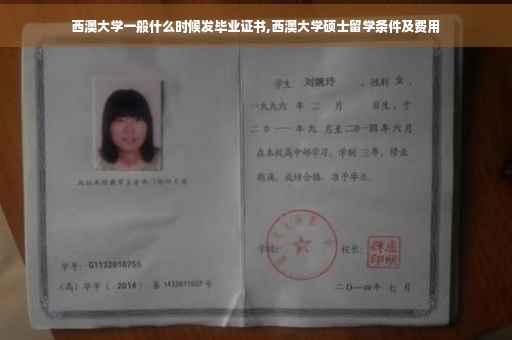 西澳大学一般什么时候发毕业证书,西澳大学硕士留学条件及费用
学生 刘婉玲 ，性别 女 ，
一九九六 年 二 月 日生，于
二0一一 年 九 月至 二0一四 年 六 月
在本校高中部学习，学制 三 年，修业
期满，成绩合格，准予毕业。
学号：G1132010755
（高）毕字（ 2014 ）第 号
校长：
二〇一四年 七 月